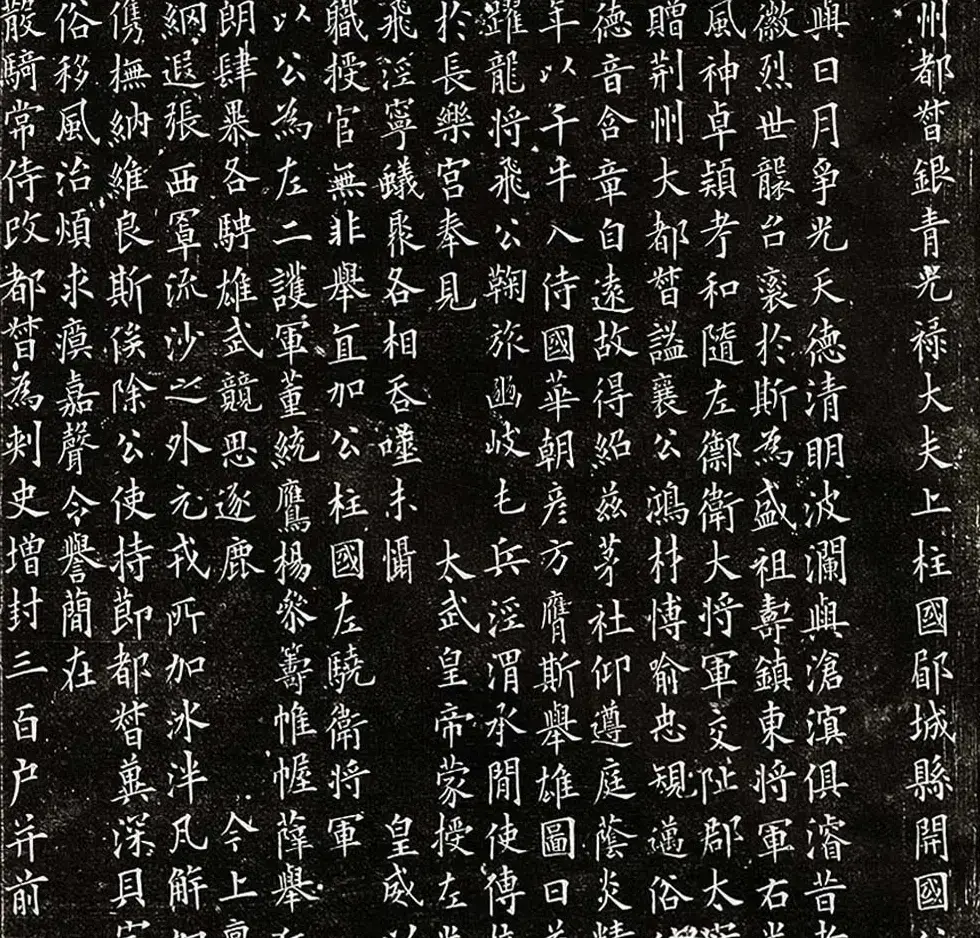 州都督銀青光祿大夫上柱國郿城縣開國
與日月爭光天德清明波瀾與滄溟俱濬昔
徽烈世襲台袞於斯為盛祖壽鎮東將軍右
風神卓穎考和隨左禦衛大將軍交阯郡太
贈荊州大都督謚襄公鴻材愽喻忠規邁俗
德音含章自遠故得紹茲茅社仰遵庭蔭炎
年以千牛入侍國華朝彥方膺斯舉雄圖曰
躍龍將飛公鞠旅豳岐乇兵涇渭承間使傳
於長樂宮奉見 太武皇帝蒙授左
飛淫寧蟻聚各相吞噬未懾 皇威
職授官無非舉直加公柱國左驍衛將軍
以公為左二護軍董統鷹楊參籌帷幄薛舉
朗肆暴各騁雄武競思逐鹿 今上
綱遐張西罩流沙之外元戎所加冰泮凡解
儁撫納維良斯俟除公使持節都督冀深貝
俗移風治煩求瘼嘉聲令譽簡在
散騎常侍改都督為刺史增封三百户并前